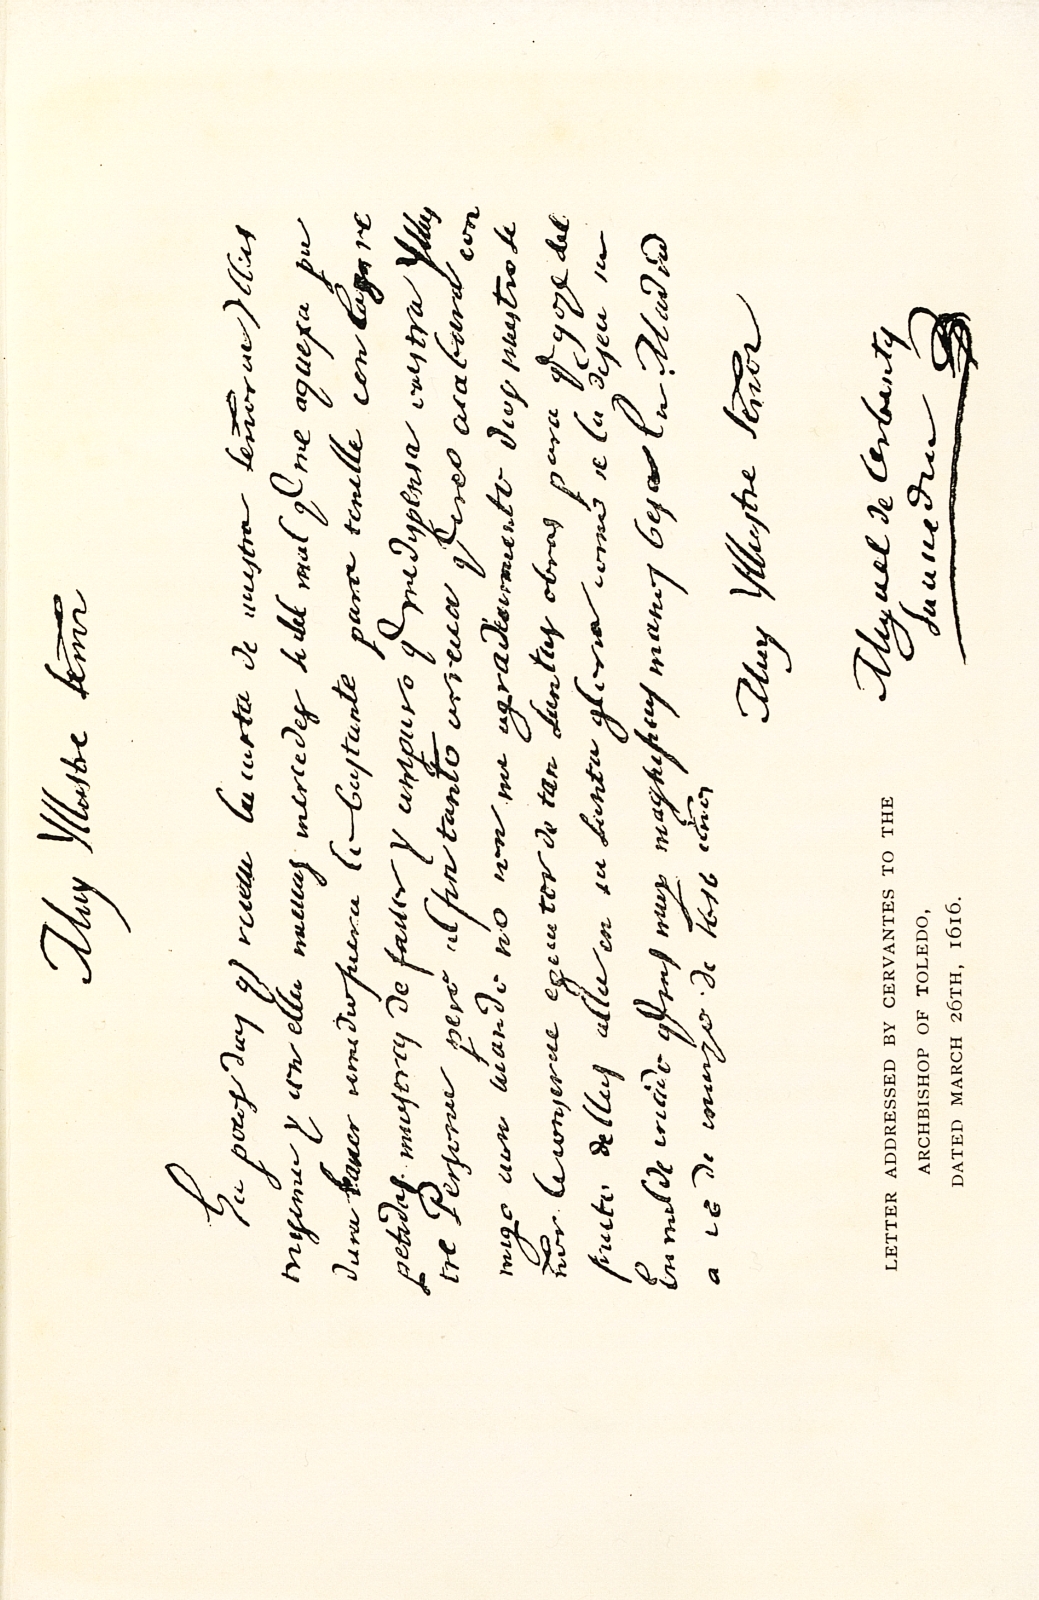 Muy Yllustre señor
Ha pocos dias q reciui la carta de vuestra señoria Yllus
trisima y con ella nueuas mercedes si del mal q me aquexa pu
diera hauer remedio fuera lo bastante para tenelle con las re
petidas muestras de fauor y amparo q me dispensa vuestra Yllus
tre Persona pero al fin tanto arrecia q creo acabara con
migo aun cuando no con mi agradecimiento Dios nuestro se
ñor le conserue egecutor de tan santas obras para q goze del
fruto dellas alla en su santa gloria como se la desea su
humilde criado q sus muy magnificas manos besa En Madrid
a 26 de marzo de 1616 años
Muy Yllustre Señor
Miguel de Cerbantes
Saauedra
LETTER ADDRESSED BY CERVANTES TO THE
ARCHBISHOP OF TOLEDO,
DATED MARCH 26TH, 1616.